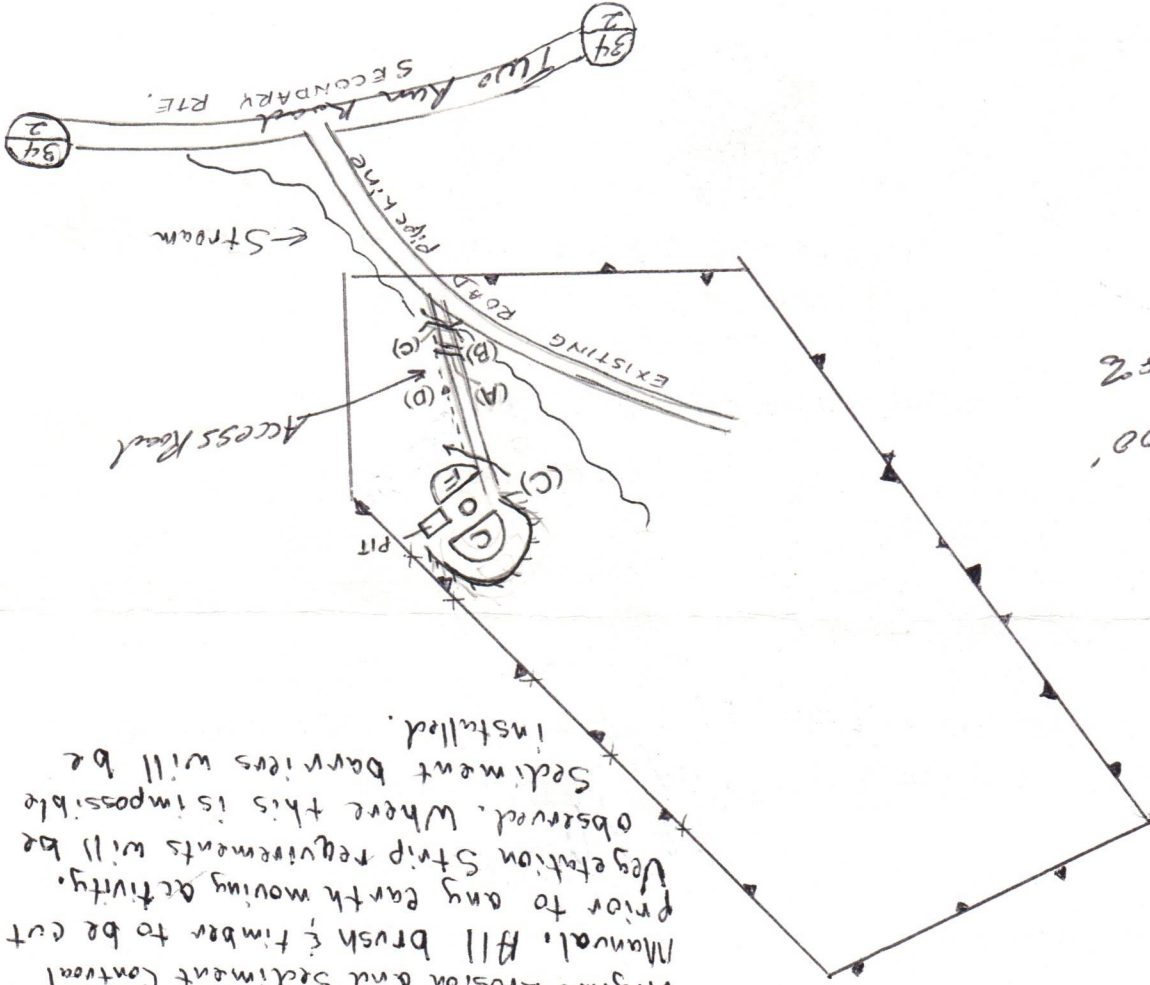 Erosion and Sediment Control
Manual. All brush & timber to be cut
prior to any earth moving activity.
Vegetation Strip requirements will be
observed. Where this is impossible
Sediment barriers will be
installed.
PIT
C
(C)
Access Road
(D)
(A)
(B)
(C)
EXISTING
ROAD
Pipeline
Stream →
34
2
Two Run Road
SECONDARY RTE.
34
2
00'
%